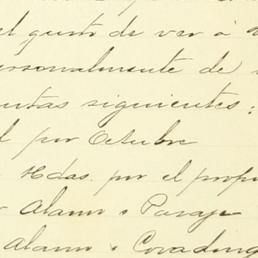 el gusto de ver á
personalmente de
puntas siguientes:
por Octubre
Hdas. por el propi
Alamo á Parage
Alamo á Covadong